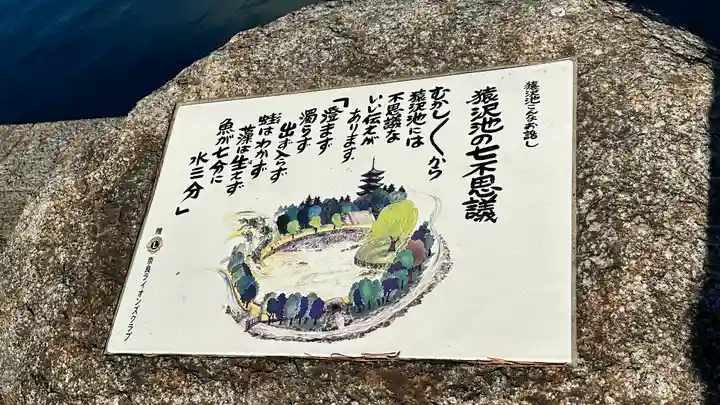 猿沢池こんなお話し
猿沢池の七不思議
むかし〱から
猿沢池には
不思議な
いい伝えが
あります。
「澄まず
濁らず
出ず入らず
蛙はわかず
藻は生えず
魚が七分に
水三分」
贈
L
奈良ライオンズクラブ